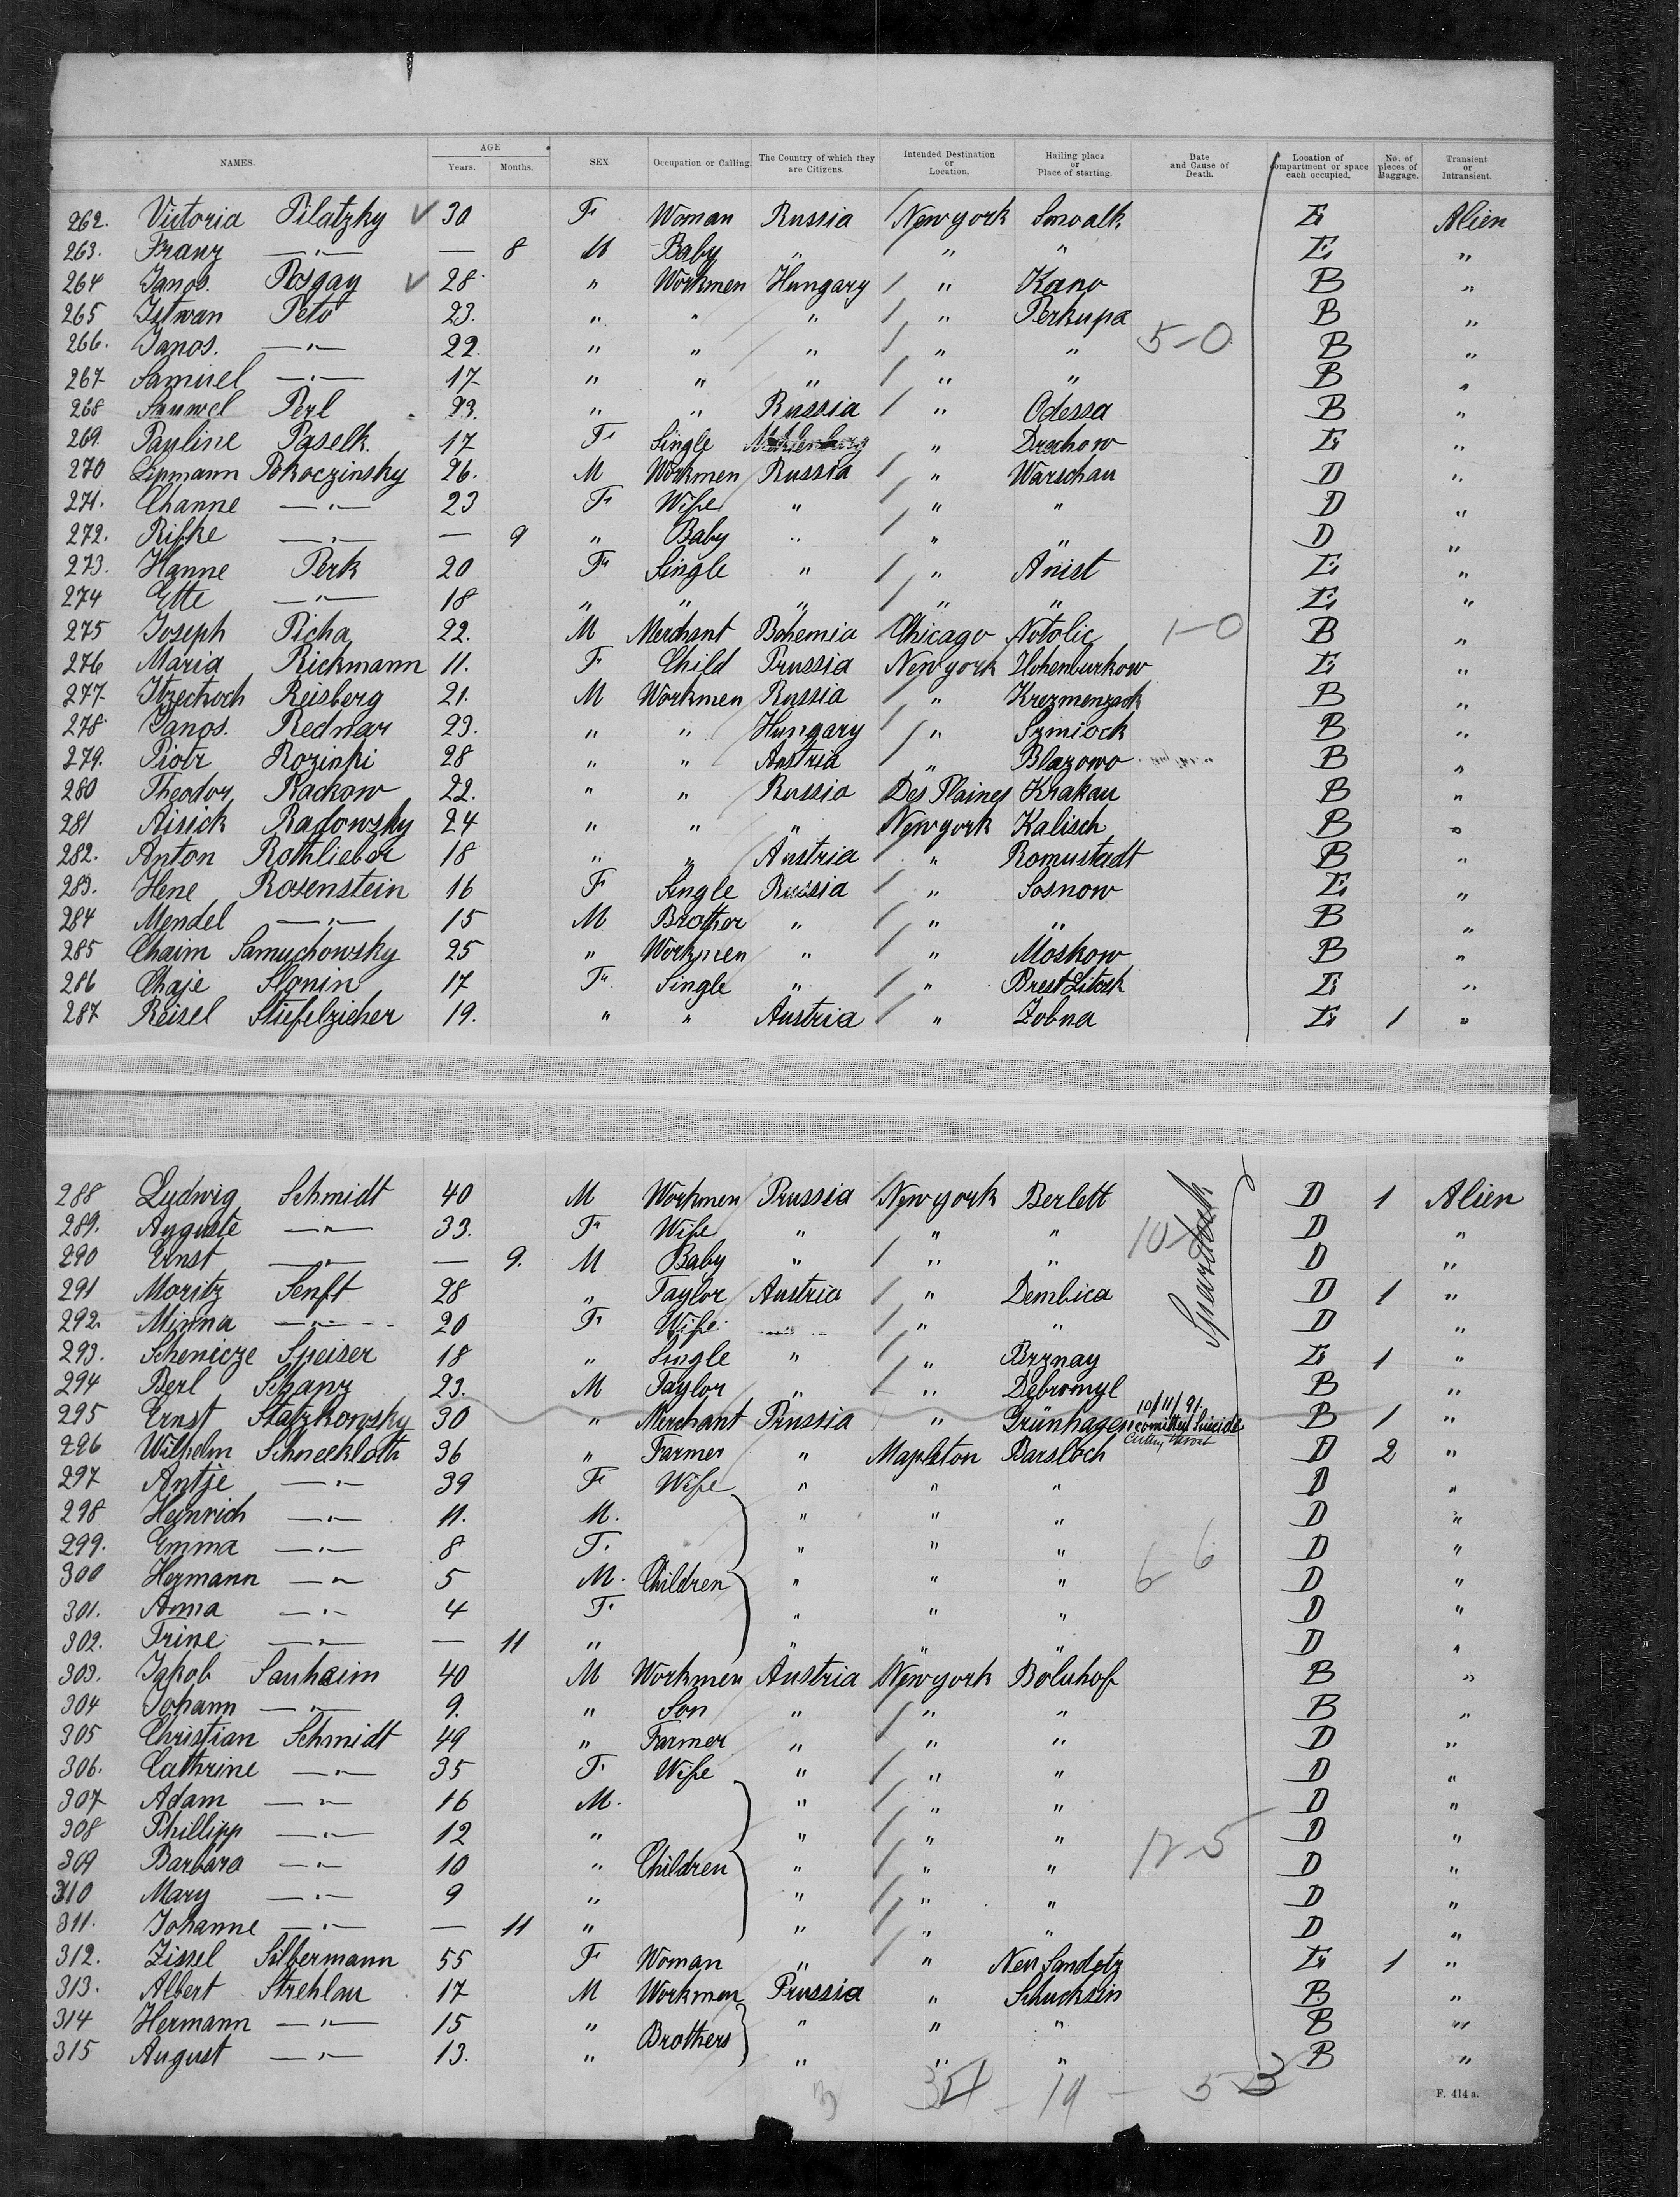 NAMES. AGE Years. Months. SEX Occupation or Calling. The Country of which they are Citizens. Intended Destination or Location. Hailing place or Place of starting. Date and Cause of Death. Location of compartment or space each occupied. No. of pieces of Baggage. Transient or Intransient.
262. Victoria Pilatzky √ 30 F Woman Russia New york Suwalk E Alien
263. Franz —"— — 8 M Baby " " " E "
264 Janos. Posgay √ 28 " Workmen Hungary / " Kano B "
265 Istwan Petö 23. " " " / " Perkupa B "
266. Janos. —"— 22. " " " / " " 5-0 B "
267 Samuel —"— 17 " " " / " " B "
268 Samuel Perl 23. " " Russia / " Odessa B "
269. Pauline Paselk 17 F Single " Drechow E "
270 Lipmann Pokoczinsky 26. M Workmen Russia / " Warschau D "
271. Channe —"— 23 F Wife " / " " D "
272. Rifke —"— — 9 " Baby " / " " D "
273. Hanne Perk 20 F Single " / " Anist E "
274 Ette —"— 18 " " " / " " E "
275 Joseph Picha 22. M Merchant Bohemia Chicago Notolic 1-0 B "
276 Maria Rickmann 11. F Child Prussia New york Hohenburkow E "
277 Itzechoch Reisberg 21. M Workmen Russia / " Krezmenzack B "
278 Janos. Rednar 23. " " Hungary / " Szmiock B "
279. Piotr Rozinki 28 " " Austria / " Blazowo B "
280 Theodor Rackow 22. " " Russia Des Plaines Krakau B "
281 Aisick Radowzky 24 " " " New york Kalisch B "
282. Anton Rothlieber 18 " " Austria / " Romustadt B "
283. Hene Rosenstein 16 F Single Russia / " Sosnow E "
284 Mendel —"— 15 M Brother " / " " B "
285 Chaim Samuchowsky 25 " Workmen " / " Moskow B "
286 Chaje Slonin 17 F Single " / " Brest Litosk E "
287 Reisel Stiefelzieher 19. " " Austria / " Zobna E 1 "
288 Ludwig Schmidt 40 M Workmen Prussia New york Berlett D 1 Alien
289. Auguste —"— 33. F Wife " " " D "
290 Ernst —"— — 9. M Baby " / " " D "
291 Moritz Senft 28 " Taylor Austria / " Dembica D 1 "
292. Minna —"— 20 F Wife / " " D "
293. Schenicze Speiser 18 " Single " / " Brznay E 1 "
294 Berl Schanz 23. M Taylor " / " Debromyl B "
295 Ernst Statzkowzky 30 " Merchant Prussia " Grünhagen 10/11/91. comitted Suicide Cutting throat B 1 "
296 Wilhelm Schneekloth 36 " Farmer " Mapleton Barsloch D 2 "
297 Antje —"— 39 F Wife " " " D "
298 Heinrich —"— 11. M. " " " D "
299. Emma —"— 8 F. " " " D "
300 Hermann —"— 5 M. Children " " " 6 6 D "
301. Anna —"— 4 F " " " D "
302. Trine —"— — 11 " " " " D "
303. Jakob Sauhaim 40 M Workmen Austria New york Boluhof B "
304 Johann —"— 9. " Son " / " " B "
305 Christian Schmidt 49 " Farmer " / " " D "
306. Cathrine —"— 35 F. Wife " / " " D "
307 Adam —"— 16 M. " / " " D "
308 Phillipp —"— 12 " " / " " D "
309 Barbara —"— 10 " Children " / " " 12-5 D "
310 Mary —"— 9 " " / " " D "
311. Johanne —"— — 11 " " / " " D "
312. Zissel Silbermann 55 F Woman " / " Neu Sandetz E 1 "
313. Albert Strehlau 17 M Workmen Prussia " Schuchsin B "
314 Hermann —"— 15 " Brothers " " " B "
315 August —"— 13. " " " " B "
3 - 19 - 5
F. 414 a.